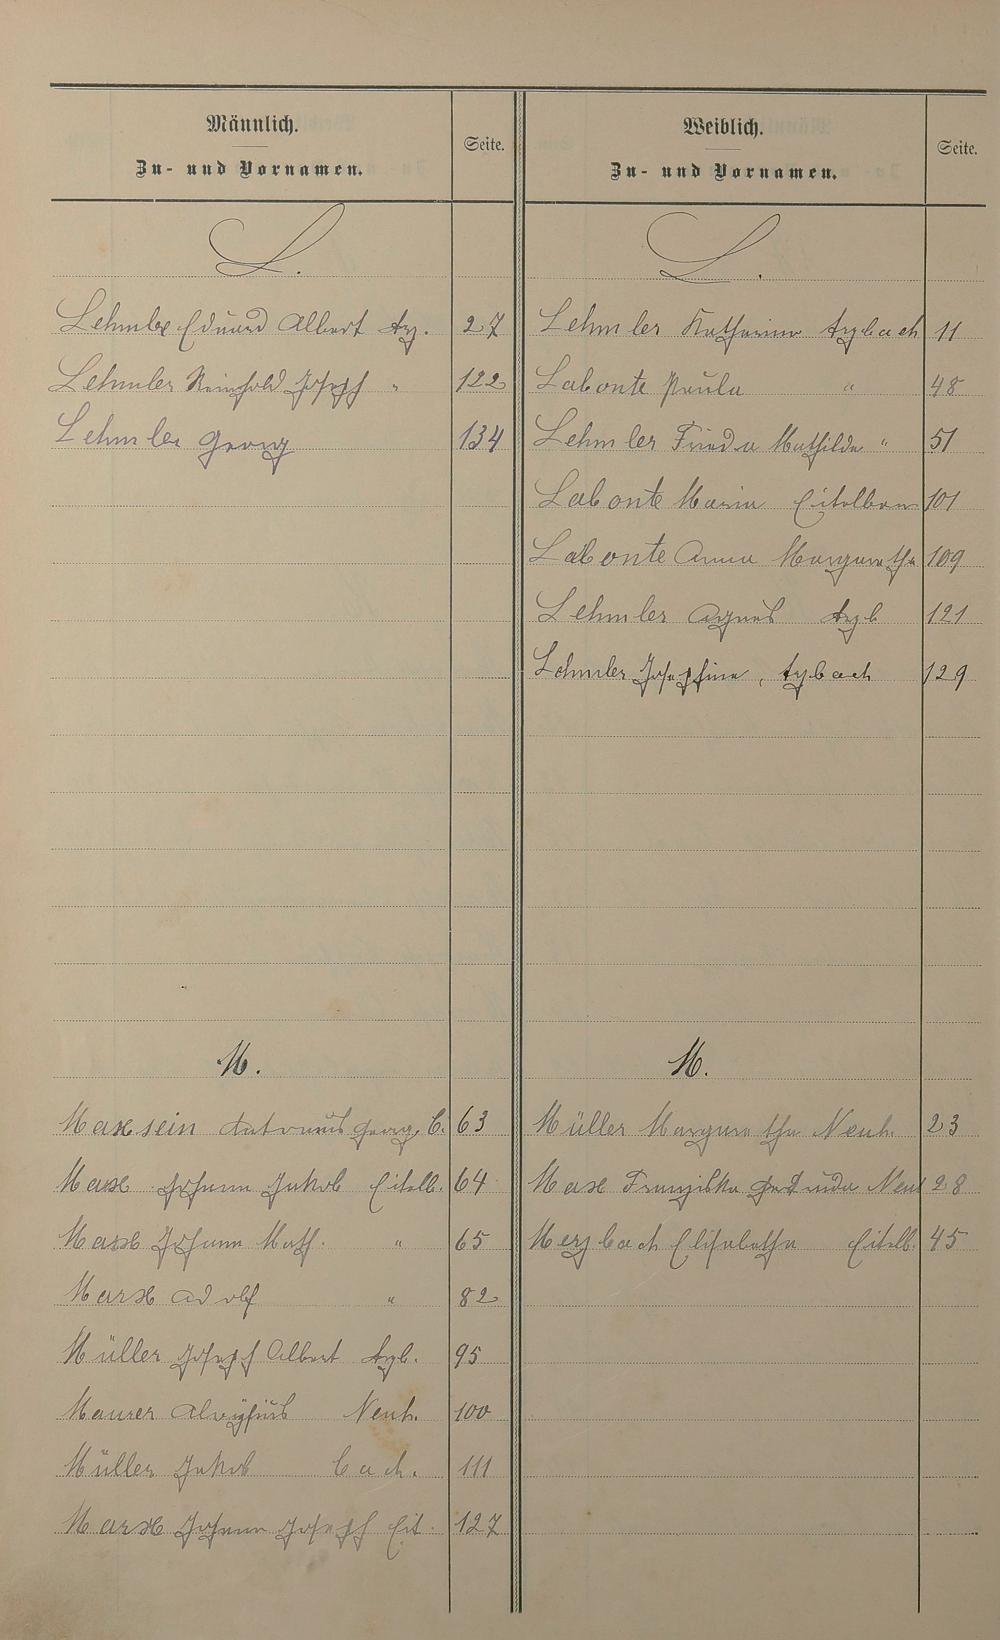 Männlich.
Zu- und Vornamen.
Seite.
L.
Lehmler Eduard Albert Arz. 27
Lehmler Reinhold Joseph " 122
Lehmler Georg 134
M.
Maxsein Antonius Georg C. 63
Marx Johann Jakob Eitelb. 64
Marx Johann Math. " 65
Marx Adolf " 82
Müller Joseph Albert Arzb. 95
Maurer Aloysius Neuh. 100
Müller Jakob Cad. 111
Marx Johann Joseph Eit. 127
Weiblich.
Zu- und Vornamen.
Seite.
L.
Lehmler Katharina Arzbach 11
Labonte Paula " 48
Lehmler Frieda Mathilde " 51
Labonte Maria Eitelborn 101
Labonte Anna Margaretha 109
Lehmler Agnes Arzb 121
Lehmler Josephine, Arzbach 129
M.
Müller Margaretha Neuh. 23
Marx Franziska Neuh 28
Merzbach Elisabetha Eitelb. 45